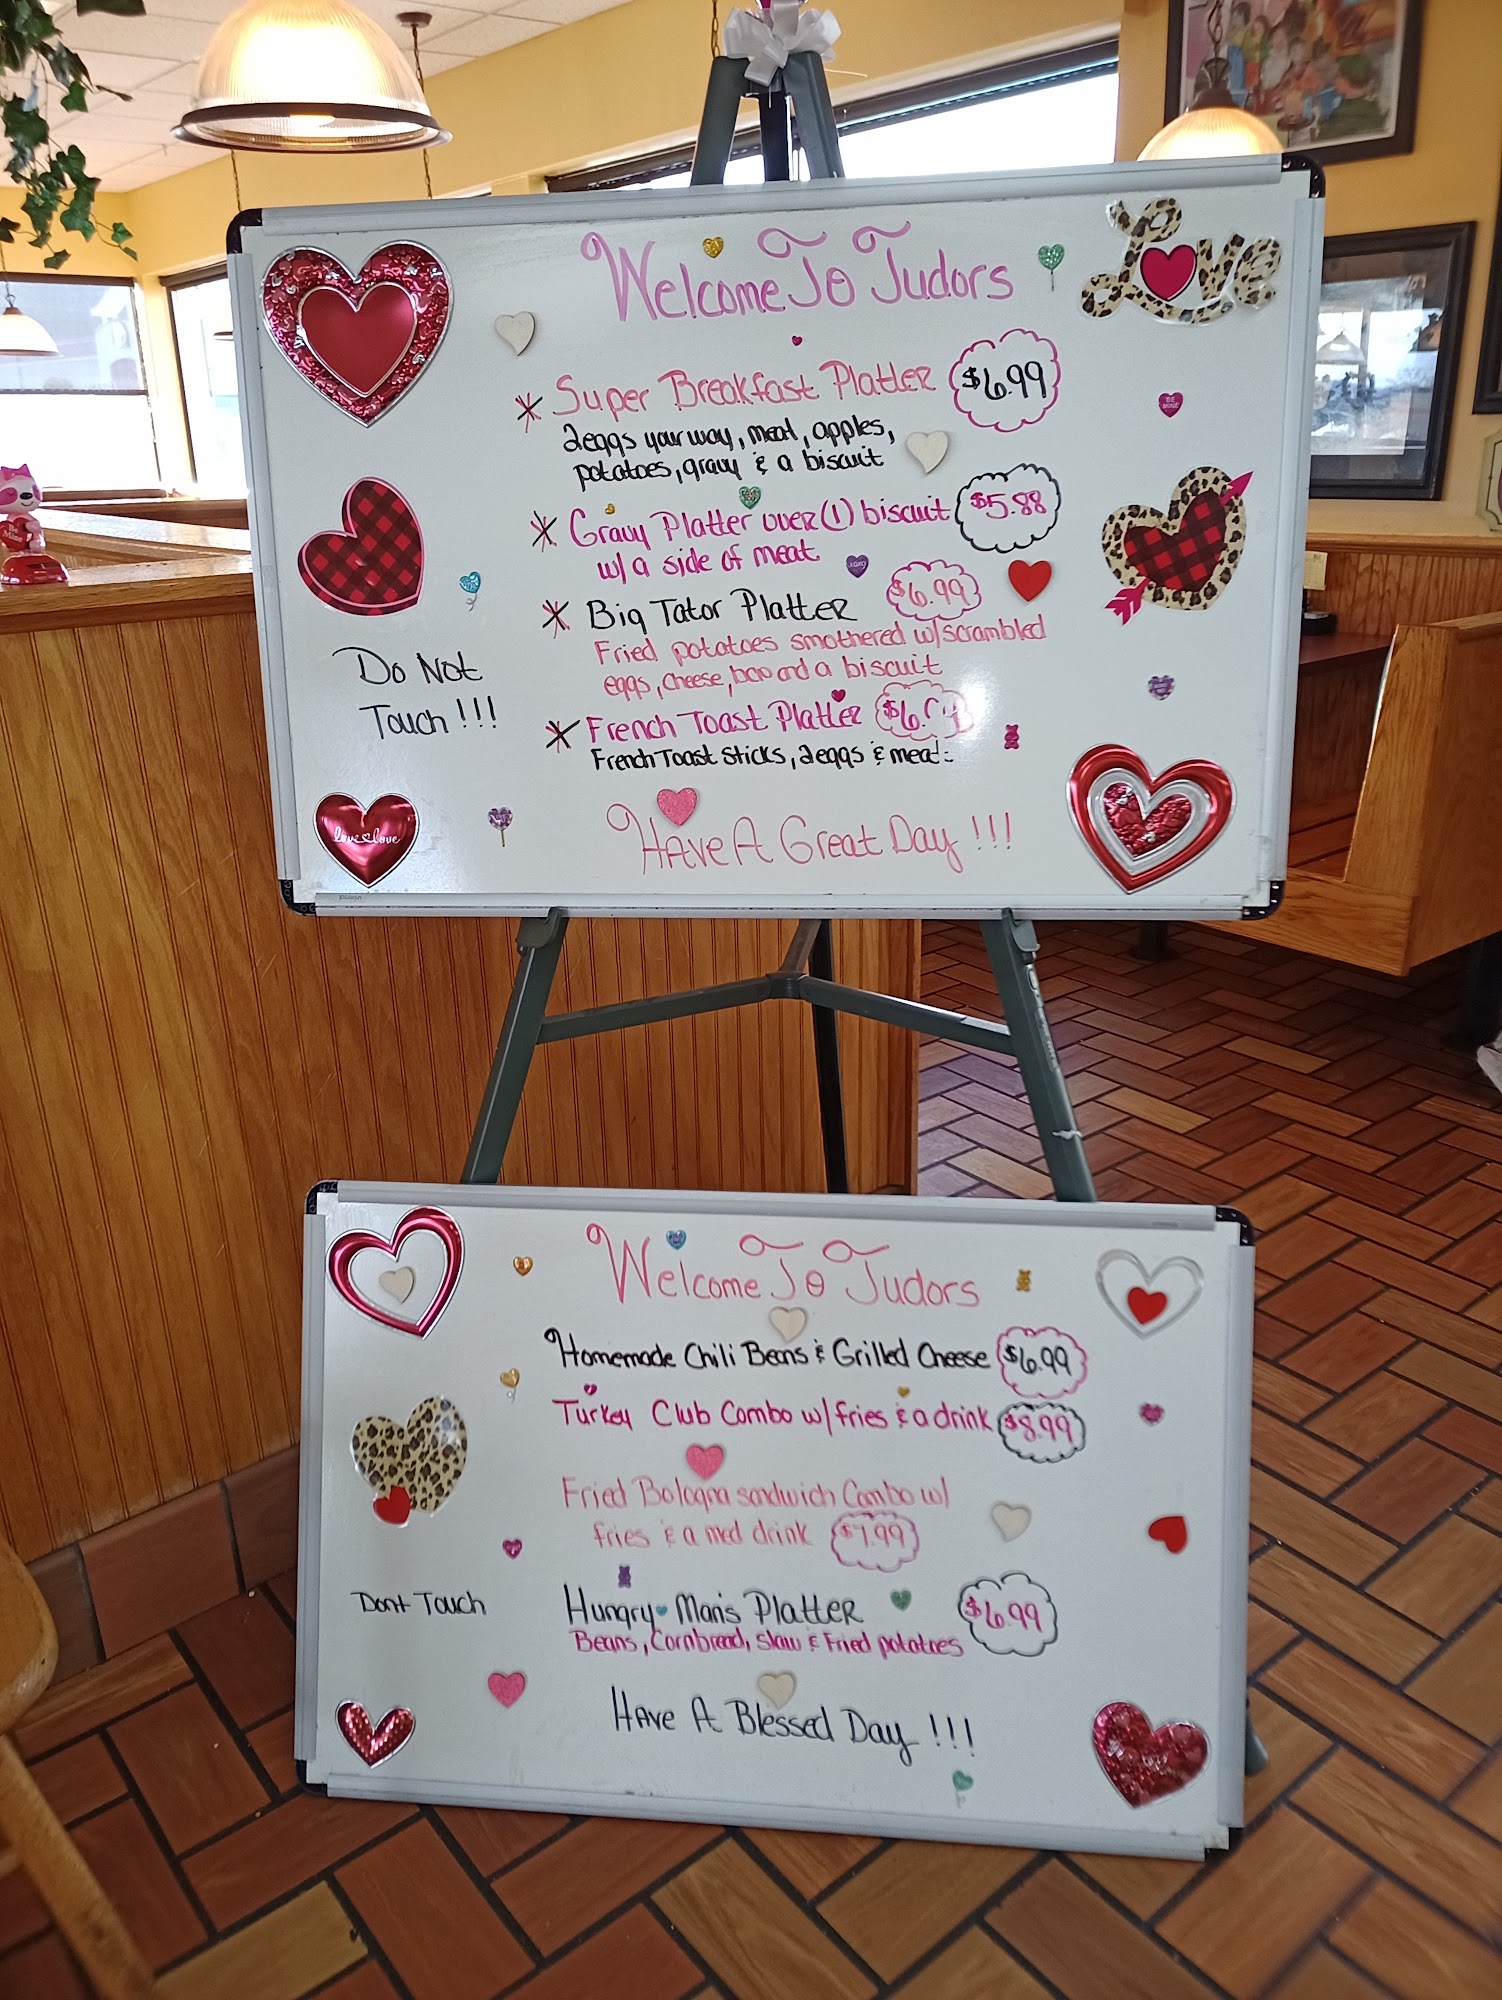 Welcome To Tudors
Love
* Super Breakfast Platter $6.99
2 eggs your way, meat, apples,
potatoes, gravy & a biscuit
BE MINE
* Gravy Platter over (1) biscuit $5.88
w/ a side of meat
XOXO
* Big Tator Platter $6.99
Fried potatoes smothered w/ scrambled
eggs, cheese, bacon and a biscuit
Do Not
Touch !!!
* French Toast Platter
French Toast Sticks, 2 eggs & meat
love love
Have A Great Day !!!
Welcome To Tudors
Homemade Chili Beans & Grilled Cheese $6.99
Turkey Club Combo w/ fries & a drink $8.99
Fried Bologna sandwich Combo w/
fries & a med drink $7.99
Dont Touch
Hungry Man's Platter $6.99
Beans, Cornbread, slaw & Fried potatoes
Have A Blessed Day !!!